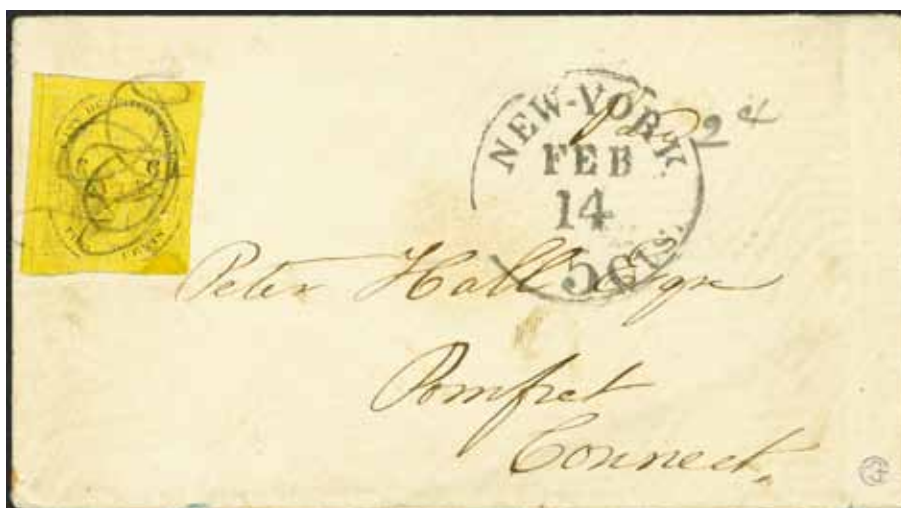 NEW-YORK.
FEB
14
5 cts.
2 d
Peter Hall Esqre
Pomfret
Connect.
CENTS